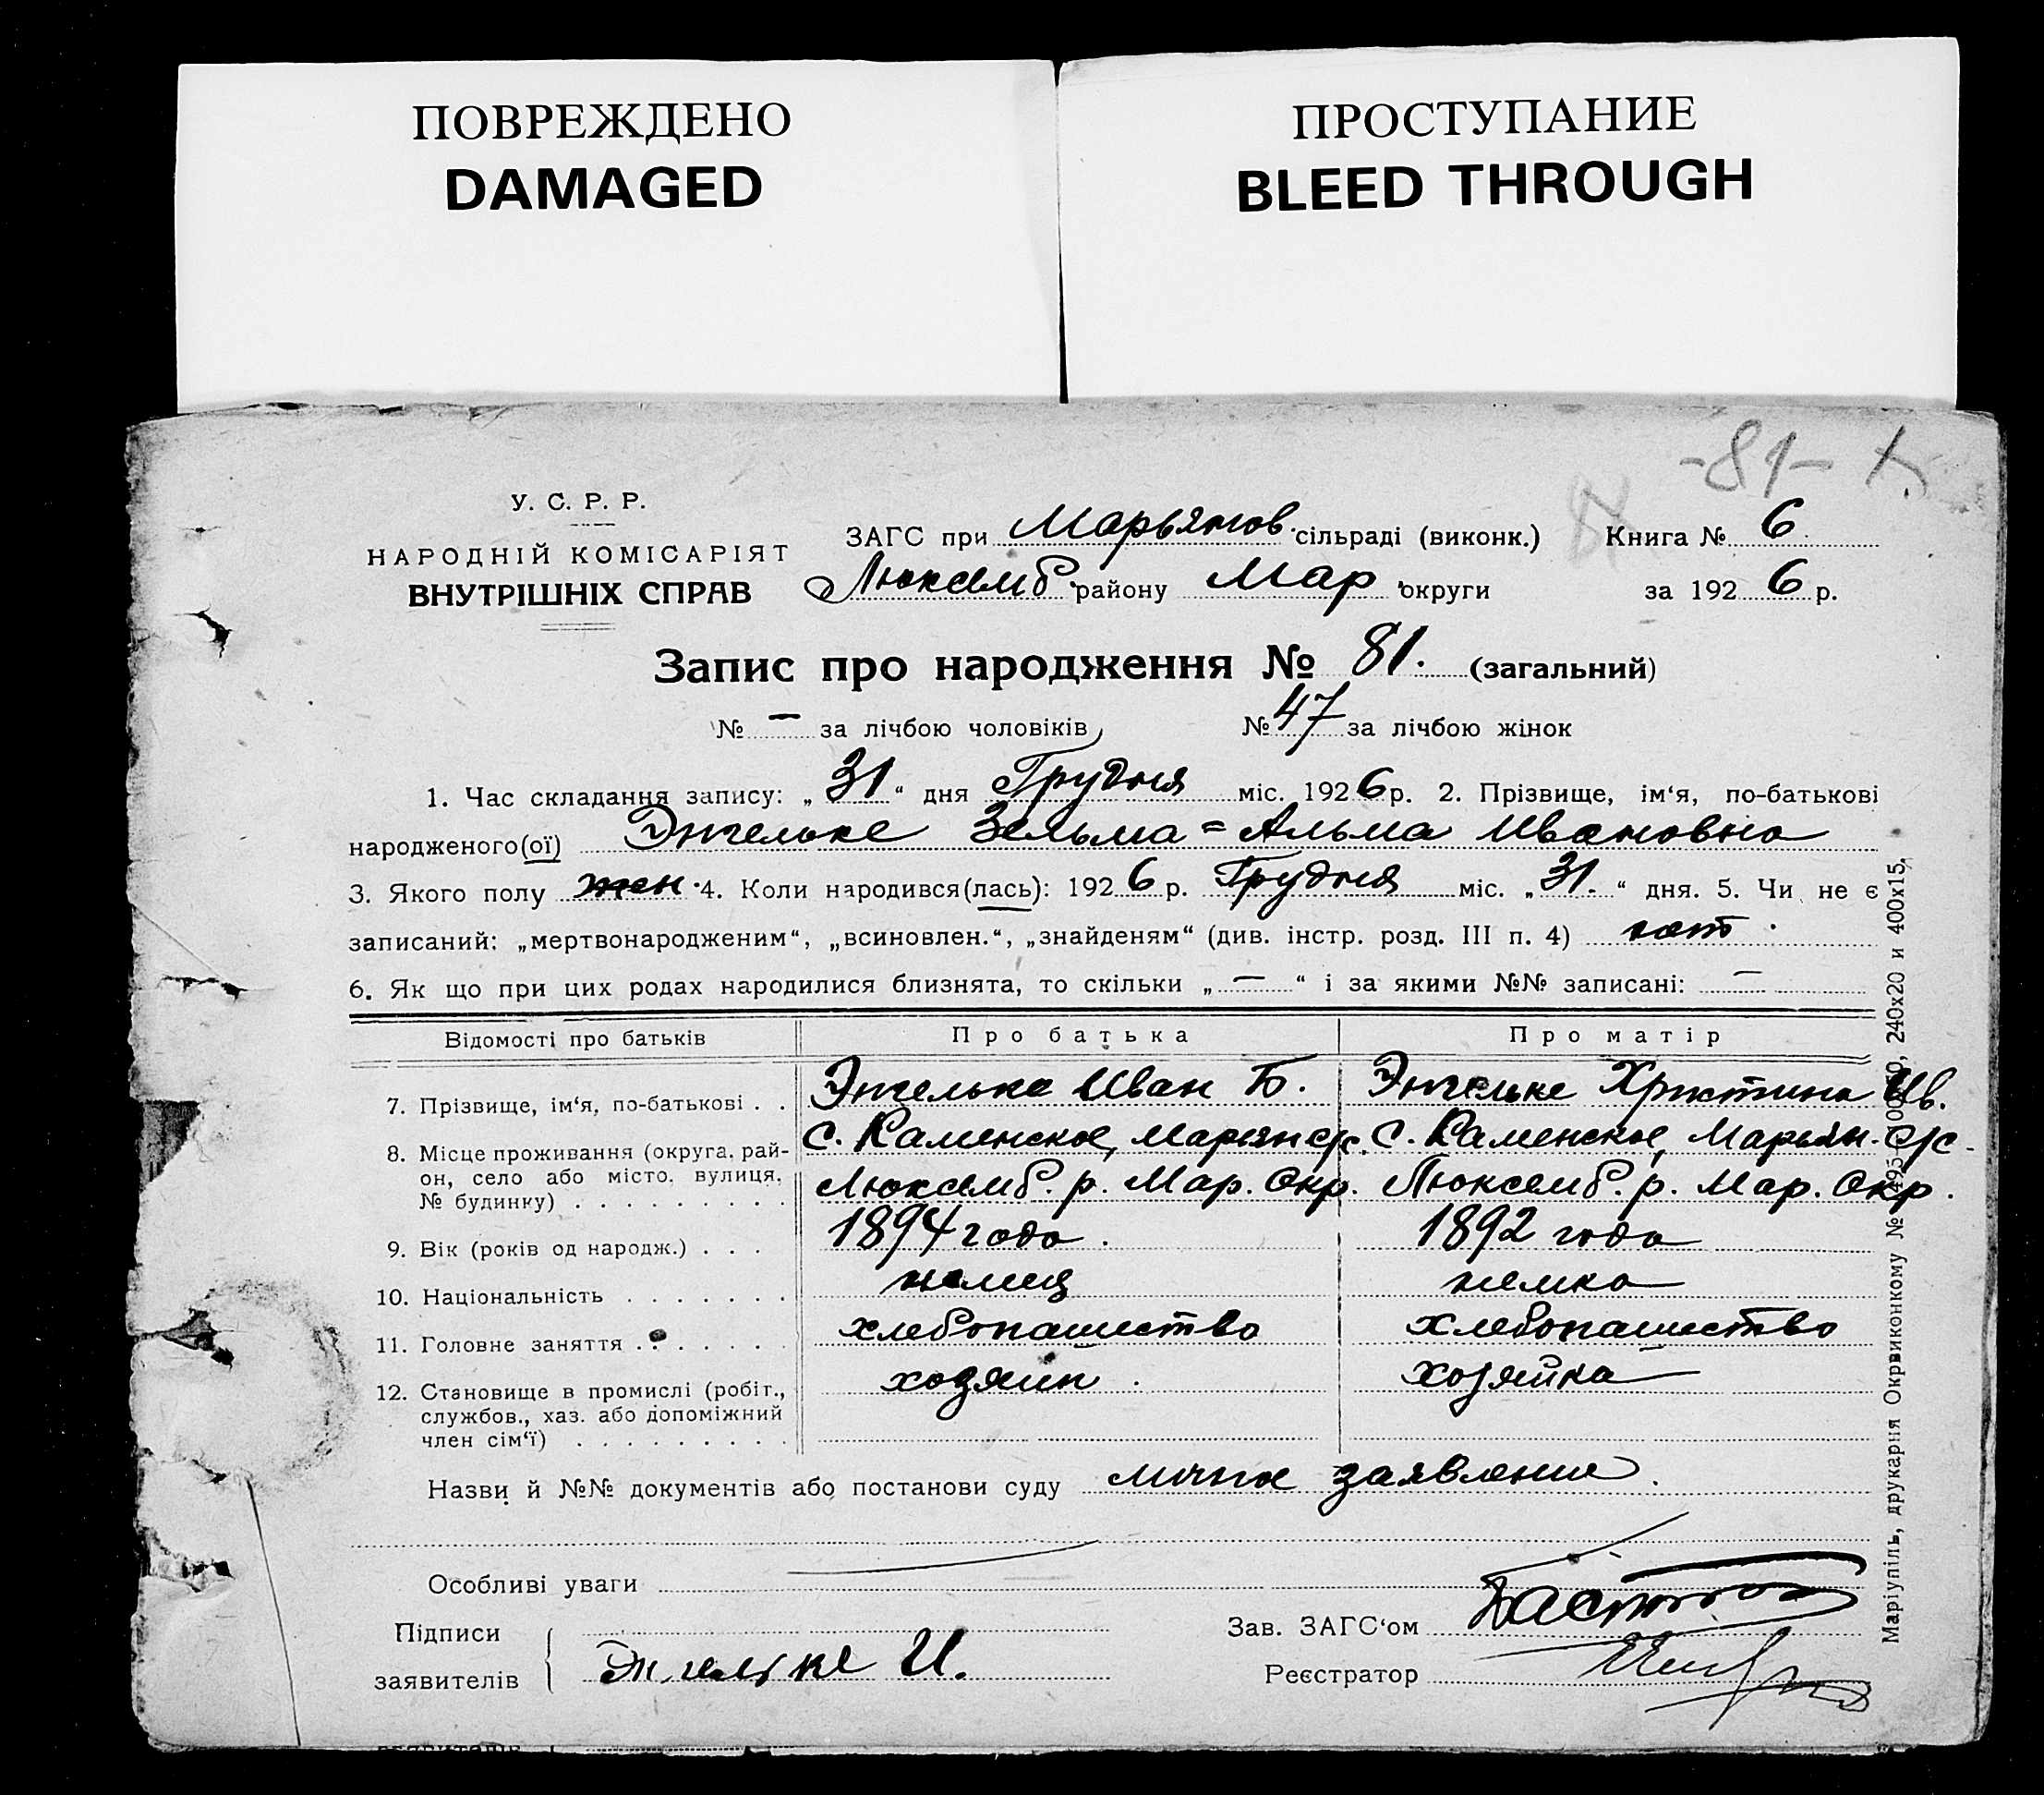 ПОВРЕЖДЕНО
DAMAGED
ПРОСТУПАНИЕ
BLEED THROUGH
-81-
У. С. Р. Р.
НАРОДНІЙ КОМІСАРІЯТ
ВНУТРІШНІХ СПРАВ
ЗАГС при Марьянов. сільраді (виконк.) Книга № 6
Люксемб. району Мар. округи за 1926 р.
Запис про народження № 81. (загальний)
№ — за лічбою чоловіків, № 47 за лічбою жінок
1. Час складання запису: „31“ дня Грудня міс. 1926 р. 2. Прізвище, ім‘я, по-батькові
народженого(ої) Энгельке Зельма=Альма Ивановна
3. Якого полу жен. 4. Коли народився(лась): 1926 р. Грудня міс. „31.“ дня. 5. Чи не є
записаний: „мертвонародженим“, „всиновлен.“, „знайденям“ (див. інстр. розд. III п. 4)
6. Як що при цих родах народилися близнята, то скільки „—“ і за якими №№ записані: —
Відомості про батьків Про батька Про матір
7. Прізвище, ім‘я, по-батькові . . Энгельке Иван Б. Энгельке Христина Ив.
8. Місце проживання (округа, рай-
он, село або місто, вулиця,
№ будинку) . . . . . . . . .
с. Каменское, Марьян с/с. с. Каменское, Марьян. с/с.
Люксемб. р. Мар. Окр. Люксемб. р. Мар. Окр.
9. Вік (років од народж.) . . . 1894 года. 1892 года
10. Національність . . . . . . . немец немка
11. Головне заняття . . . . . . . хлебопашество хлебопашество
12. Становище в промислі (робіт.,
службов., хаз. або допоміжний
член сім‘ї) . . . . . . . . .
хозяин. хозяйка
Назви й №№ документів або постанови суду личное заявление.
Особливі уваги
Підписи
заявителів Энгельке И.
Зав. ЗАГС‘ом
Реєстратор
Маріупіль, друкарня Окрвиконкому № 240х20 и 400х15.